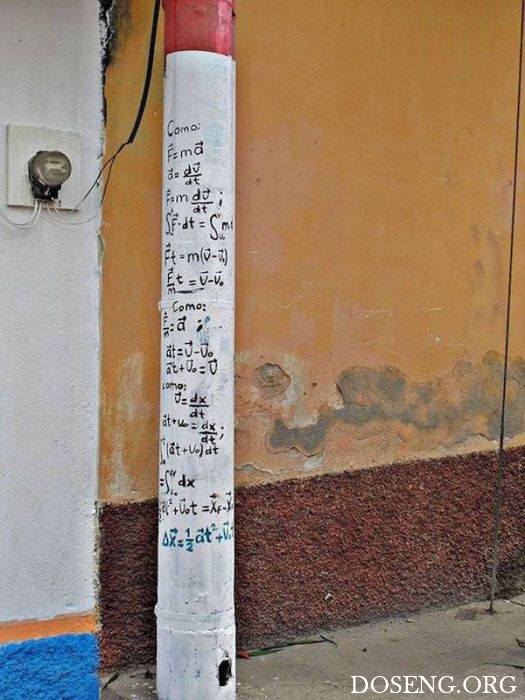 Como:
F⃗=ma⃗
a⃗=dv⃗/dt
F⃗=m dv⃗/dt;
∫F⃗·dt=∫m
F⃗t=m(v⃗-v⃗₀)
F⃗/m t=v⃗-v⃗₀
Como:
=a⃗;
a⃗t=v⃗-v⃗₀
a⃗t+v⃗₀=v⃗
Como:
v⃗=dx/dt
a⃗t+v₀=dx/dt;
∫(a⃗t+v₀)dt
=∫dx
t²+v⃗₀t=x⃗f-x⃗
Δx⃗=½a⃗t²+v⃗₀t
DOSENG.ORG